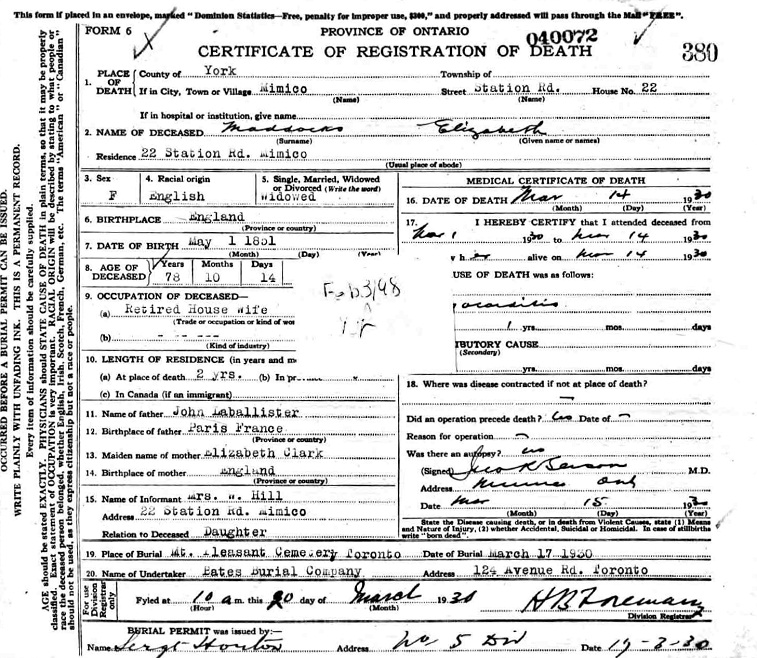 This form if placed in an envelope, marked "Dominion Statistics—Free, penalty for improper use, $300," and properly addressed will pass through the Mail "FREE".
FORM 6 PROVINCE OF ONTARIO 040072
CERTIFICATE OF REGISTRATION OF DEATH 380
1. PLACE OF DEATH County of York Township of
If in City, Town or Village Mimico Street Station Rd. House No. 22
(Name) (Name)
If in hospital or institution, give name
2. NAME OF DECEASED Maddocks Elizabeth
(Surname) (Given name or names)
Residence 22 Station Rd. Mimico
(Usual place of abode)
3. Sex 4. Racial origin 5. Single, Married, Widowed or Divorced (Write the word)
F English Widowed
6. BIRTHPLACE England
(Province or country)
7. DATE OF BIRTH May 1 1851
(Month) (Day) (Year)
8. AGE OF DECEASED Years Months Days
78 10 14
9. OCCUPATION OF DECEASED—
(a) Retired House Wife
(Trade or occupation or kind of wor
(b)
(Kind of industry)
Feb 3/48
10. LENGTH OF RESIDENCE (in years and m
(a) At place of death 2 yrs. (b) In pr
(c) In Canada (if an immigrant)
11. Name of father John Laballister
12. Birthplace of father Paris France
(Province or country)
13. Maiden name of mother Elizabeth Clark
14. Birthplace of mother England
(Province or country)
15. Name of Informant Mrs. W. Hill
Address 22 Station Rd. Mimico
Relation to Deceased Daughter
MEDICAL CERTIFICATE OF DEATH
16. DATE OF DEATH Mar 14 1930
(Month) (Day) (Year)
17. I HEREBY CERTIFY that I attended deceased from
Mar 1 1930 to Mar 14 1930
w h er alive on Mar 14 1930
USE OF DEATH was as follows:
ocarditis
1 yrs. mos. days
IBUTORY CAUSE
(Secondary)
yrs. mos. days
18. Where was disease contracted if not at place of death?
Did an operation precede death? no Date of
Reason for operation
Was there an autopsy? no
(Signed) M.D.
Address Mimico Ont
Date Mar 15 1930
(Month) (Day) (Year)
State the Disease causing death, or in death from Violent Causes, state (1) Means and Nature of Injury, (2) whether Accidental, Suicidal or Homicidal. In case of stillbirths write "born dead".
19. Place of Burial Mt. Pleasant Cemetery Toronto Date of Burial March 17 1930
20. Name of Undertaker Bates Burial Company Address 124 Avenue Rd. Toronto
For use of Division Registrar only
Fyled at 10 a.m. this 20 day of March 1930 H B Foreman
(Hour) (Month) Division Registrar
BURIAL PERMIT was issued by:—
Name Sergt Address No 5 Div Date 17-3-30
OCCURRED BEFORE A BURIAL PERMIT CAN BE ISSUED.
WRITE PLAINLY WITH UNFADING INK. THIS IS A PERMANENT RECORD.
Every item of information should be carefully supplied.
AGE should be stated EXACTLY. PHYSICIANS should STATE CAUSE OF DEATH in plain terms, so that it may be properly
classified. Exact statement of OCCUPATION is very important. RACIAL ORIGIN will be described by stating to what people or
race the deceased person belonged, whether English, Irish, Scotch, French, German, etc. The terms "American" or "Canadian"
should not be used, as they express citizenship but not a race or people.